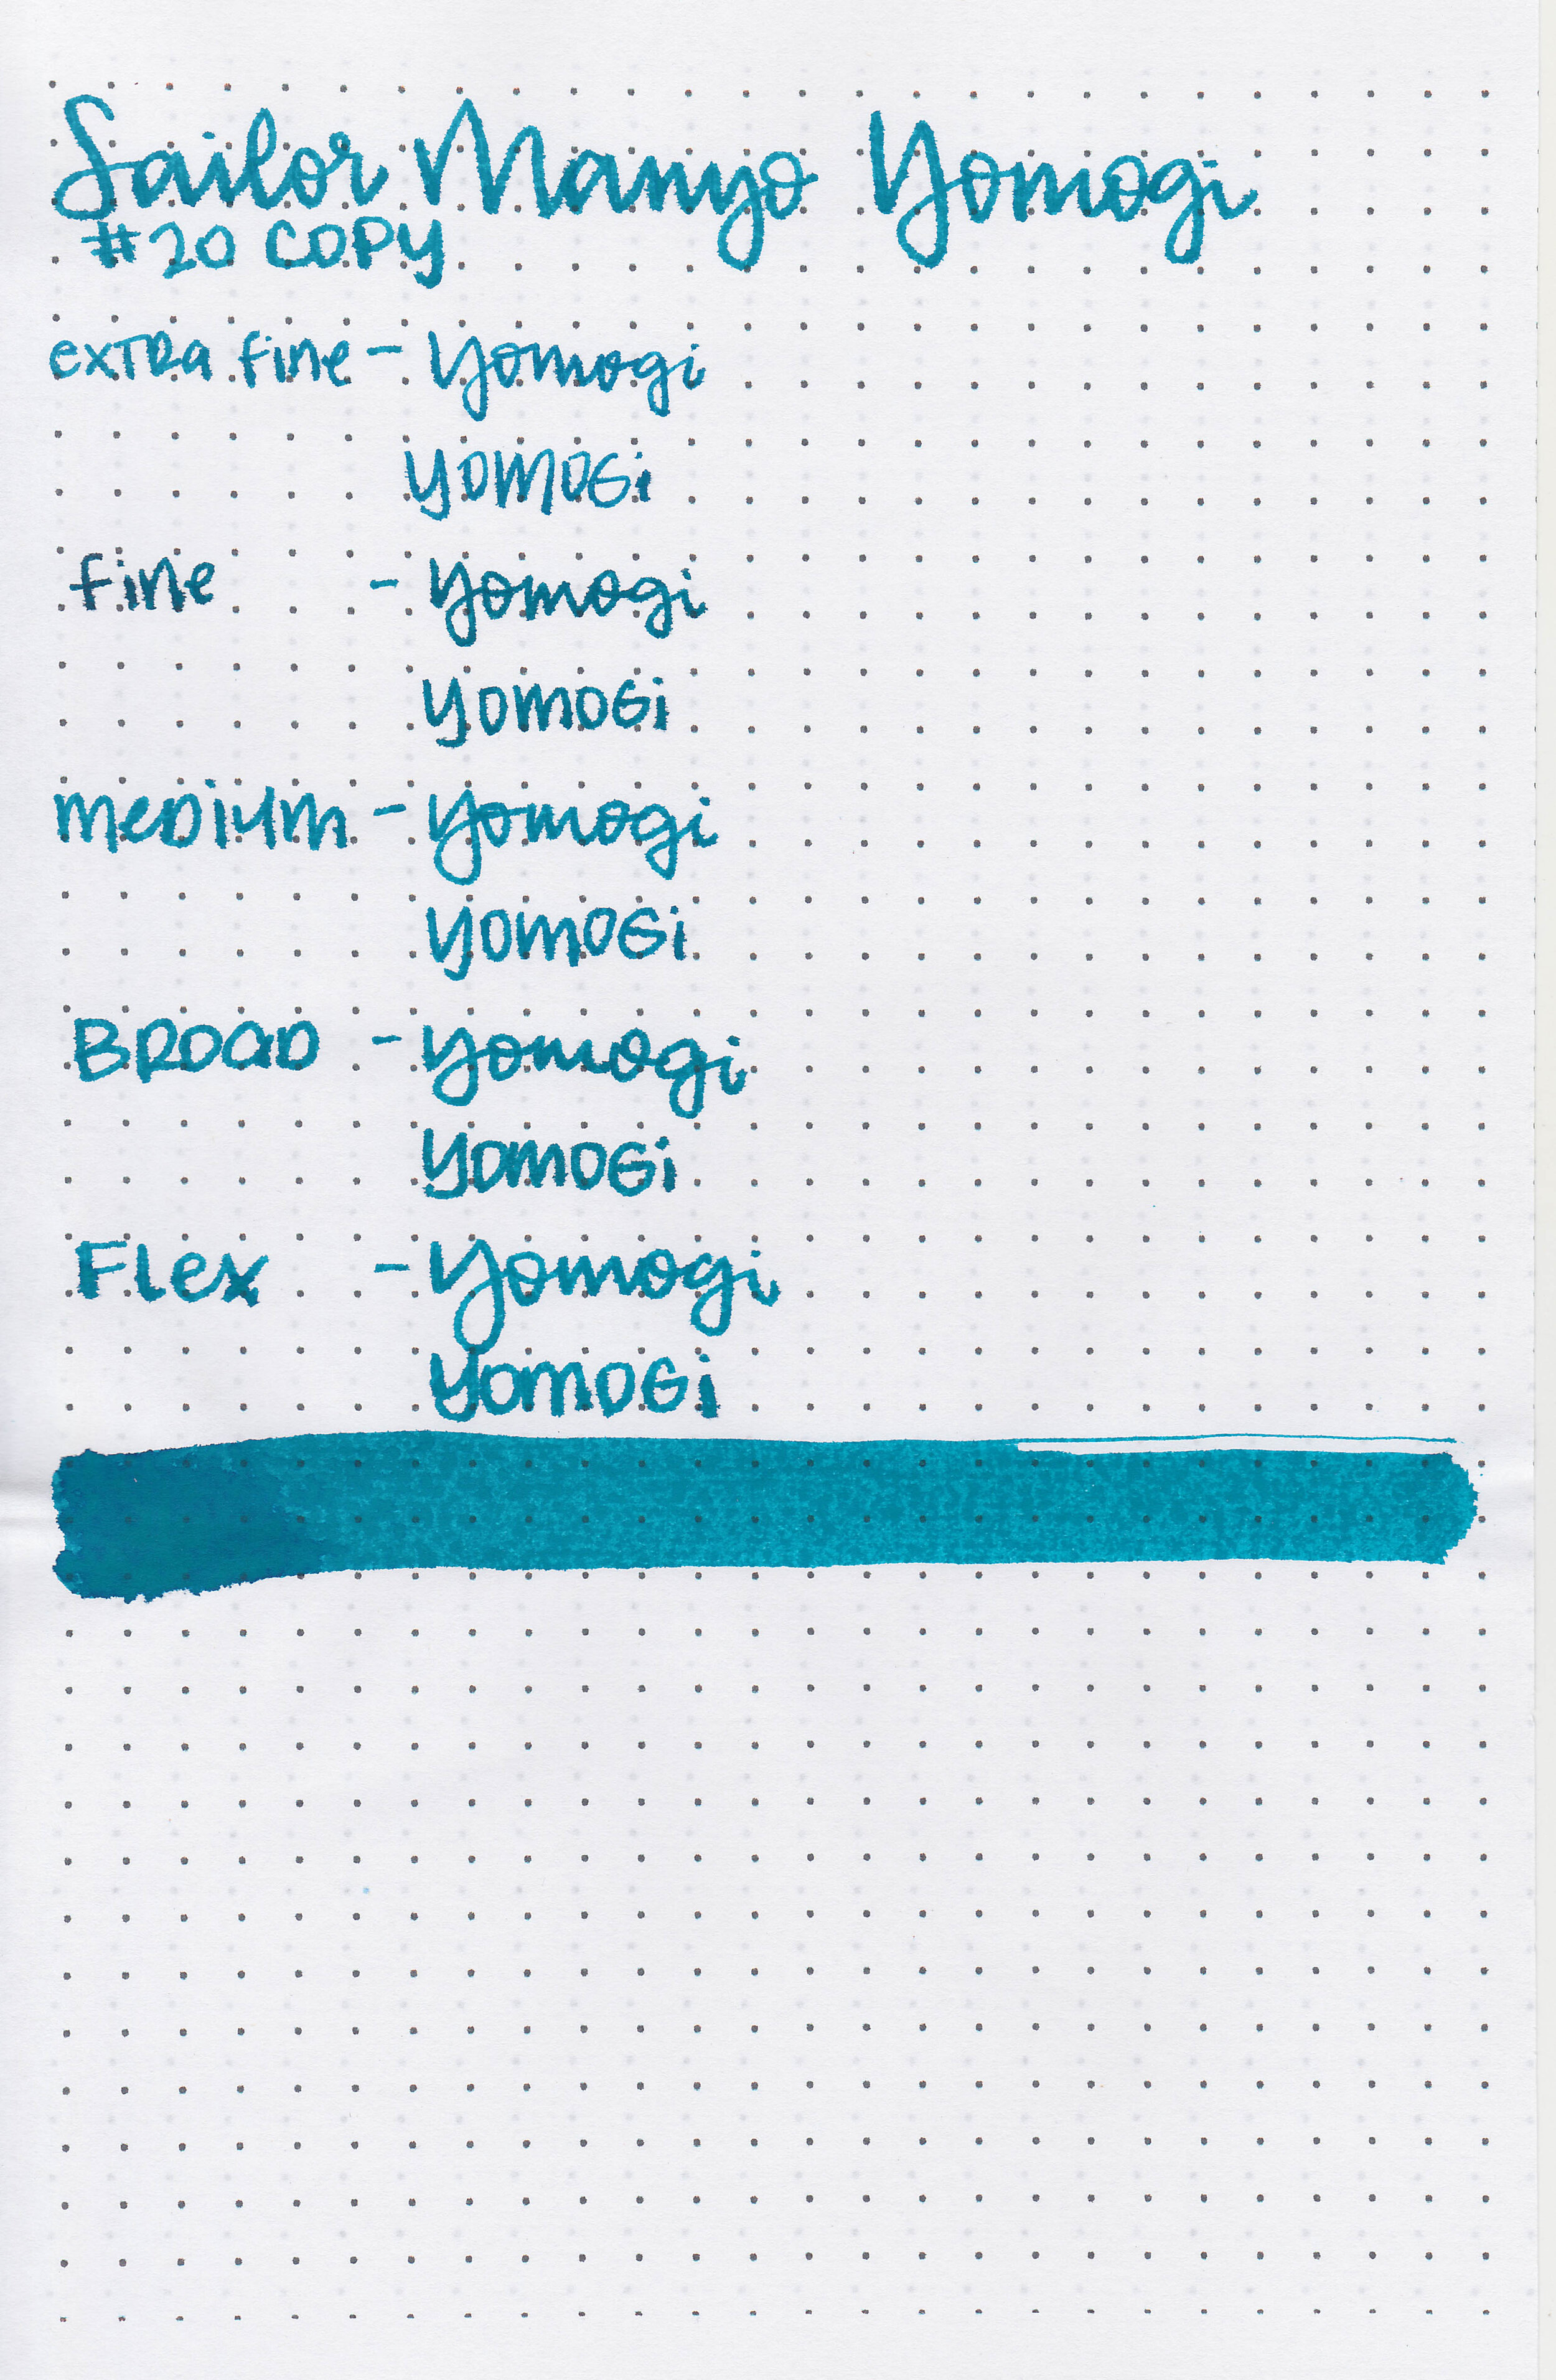 Sailor Manyo Yomogi
#20 COPY
exTRa fine - yomogi
YOMOGi
fine - yomogi
YOMOGi
meDium - yomogi
YOMOGi
BROaD - yomogi
YOMOGi
Flex - yomogi
YOMOGi